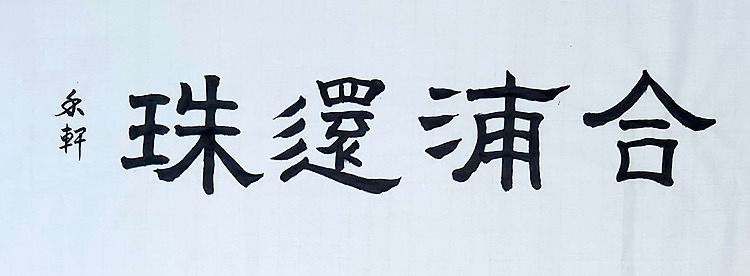 合浦還珠
永軒